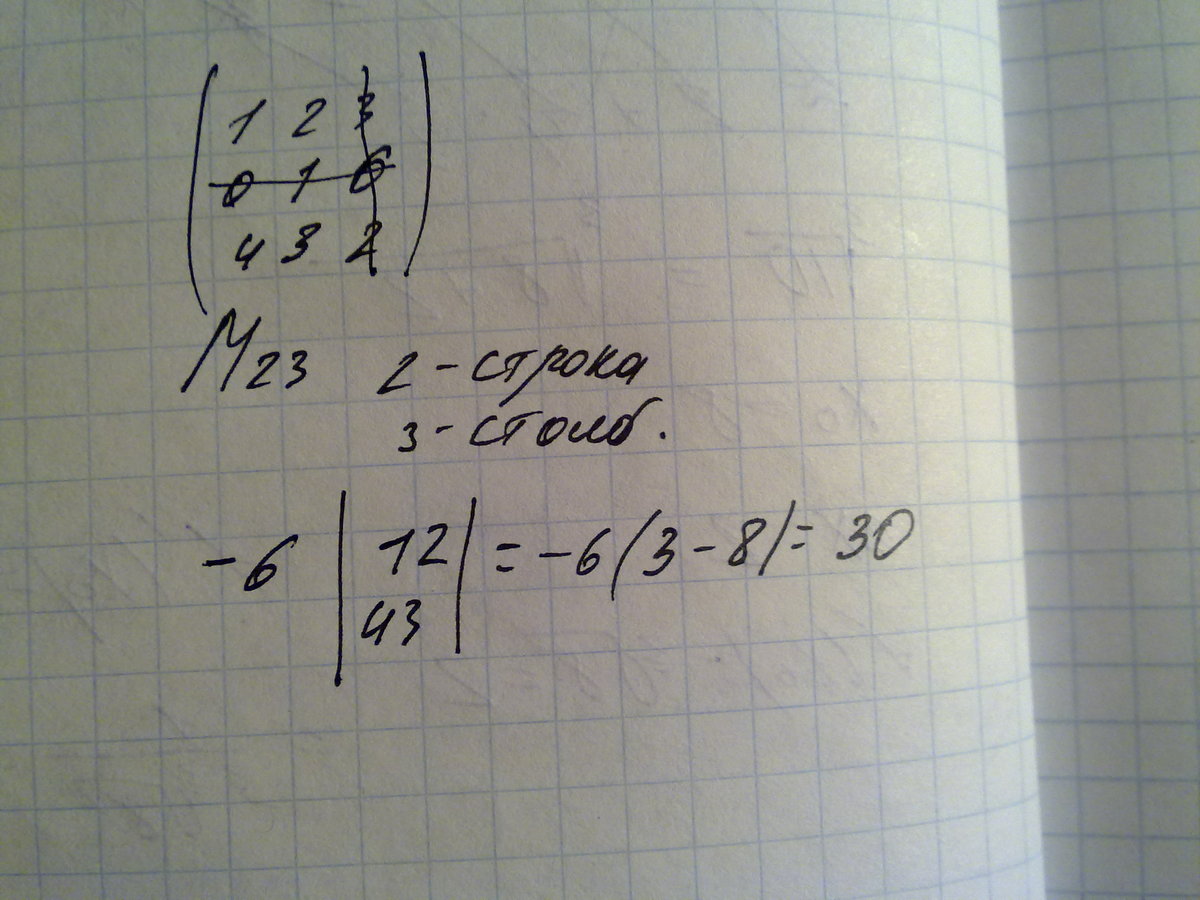 1 2 3
0 1 6
4 3 2
M23 2-строка
3-столб.
-6 | 12 | = -6(3-8)= 30
43